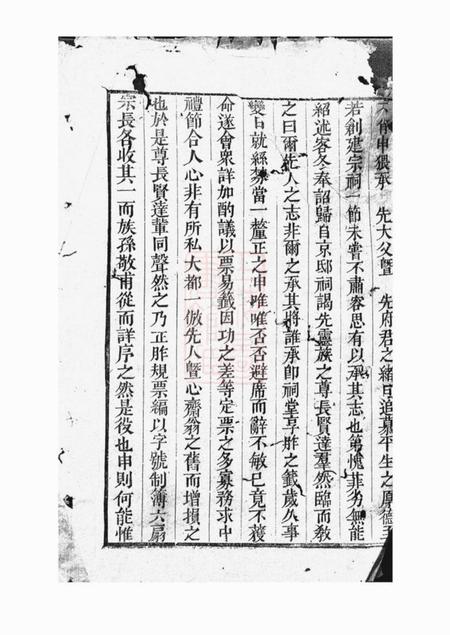 不肖申猥承　先大父暨　先府君之緒日追慕平生之厚德至
若創建宗祠一節未甞不肅容思有以承其志也第愧菲劣無能
紹述客冬奉詔歸自京邸祠謁先靈族之尊長賢達羣然臨而教
之曰爾先人之志非爾之承其將誰承卽祠堂享胙之籤歲久事
變日就紛棼當一釐正之申唯唯否否避席而辭不敏已竟不獲
命遂會衆詳加酌議以票易籤因功之差等定票之多寡務求中
禮節合人心非有所私大都一倣先人曁心齋翁之舊而增損之
也於是尊長賢達輩同聲然之乃正胙規票編以字號制簿六扇
宗長各收其一而族孫敬甫從而詳序之然是役也申則何能惟